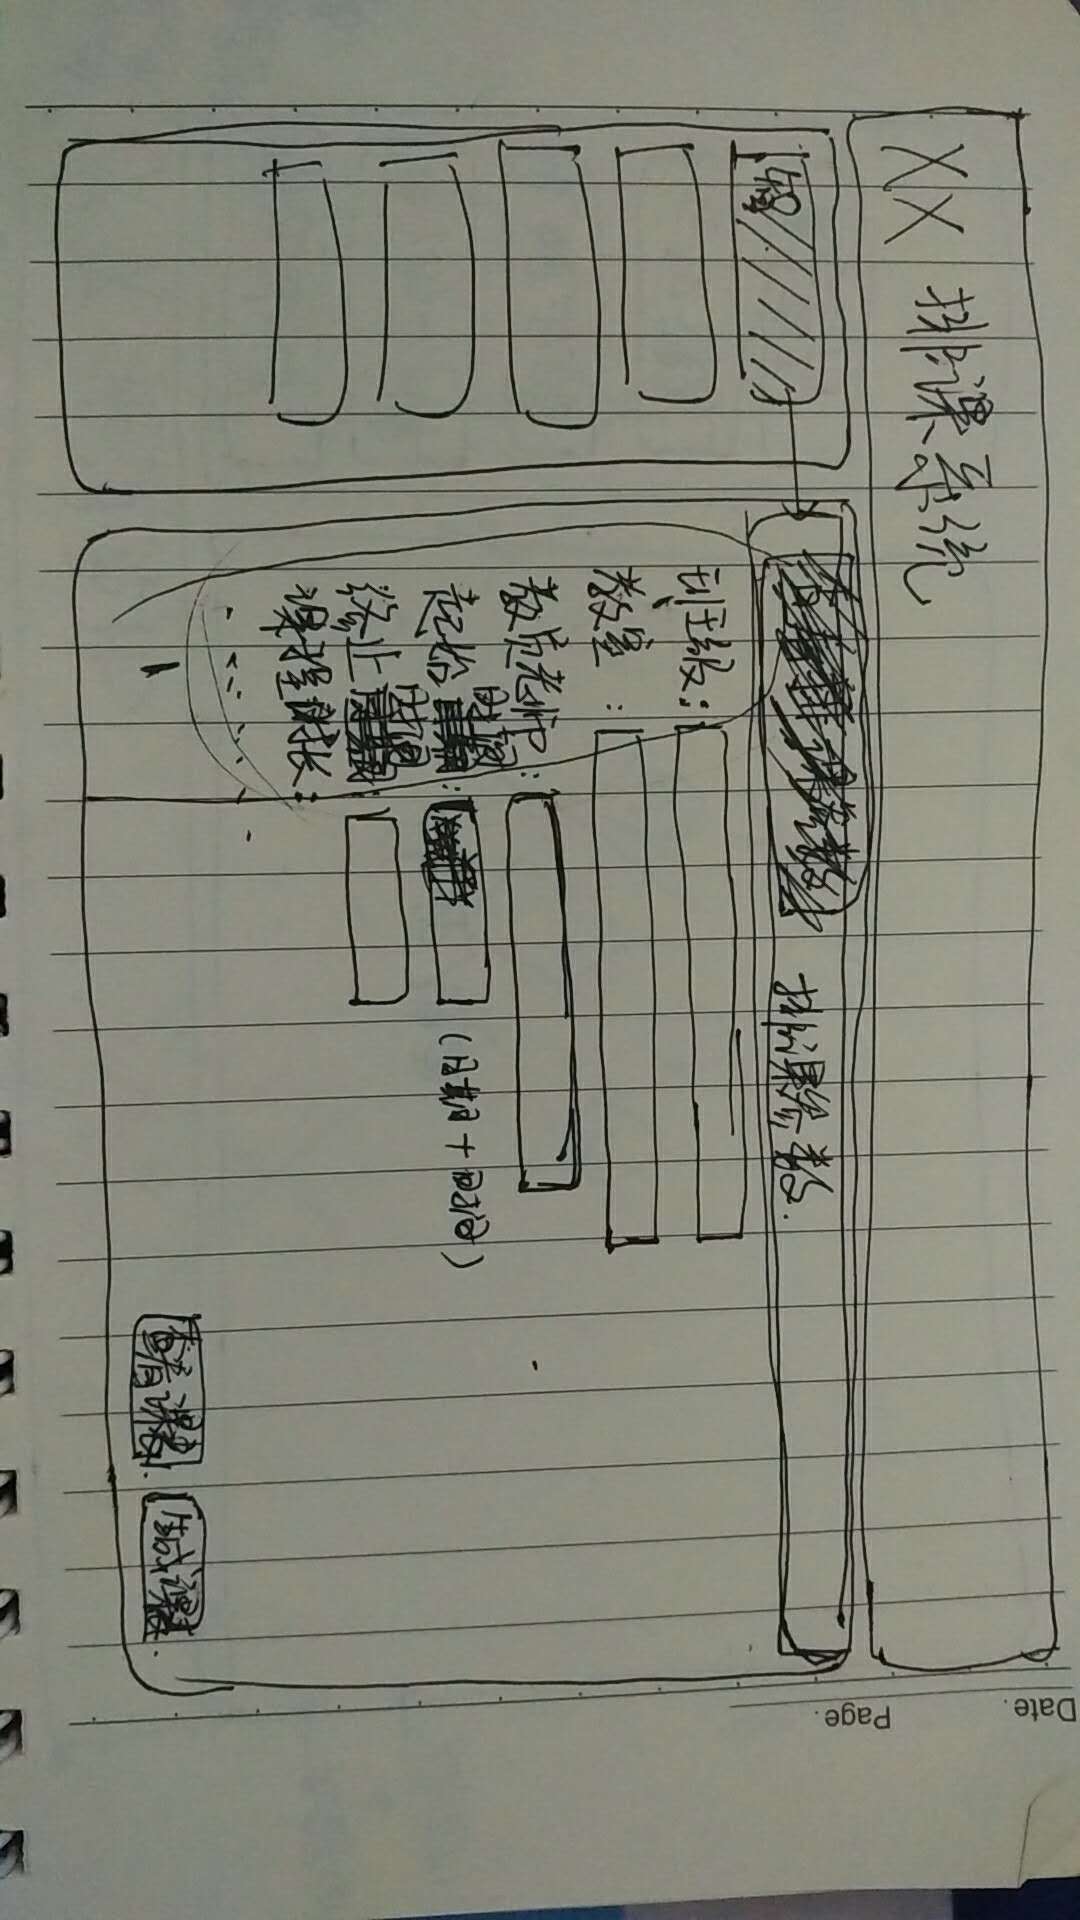 Date.
Page.
XX 排课系统
排课参数.
班级:
教室:
教员老师:
起始时间: (日期+时间)
终止时间:
课程时长:
查看课表.
生成课表.